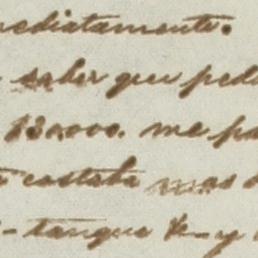 mediatamente.
saber que pedi
130,000. me pa
costaba mas
tanque K y